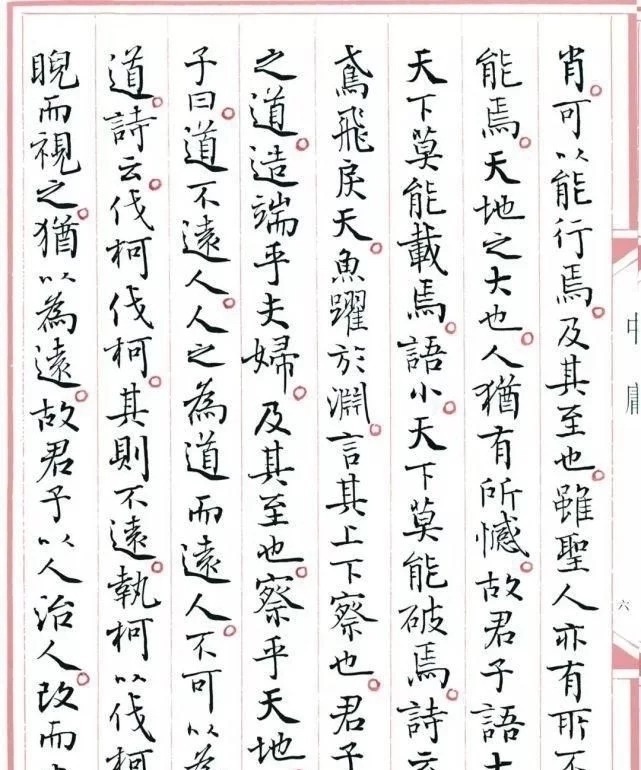 肖。可以能行焉。及其至也。雖聖人亦有所不
能焉。天地之大也。人猶有所憾。故君子語大
天下莫能載焉。語小。天下莫能破焉。詩云
鳶飛戾天。魚躍於淵。言其上下察也。君子
之道。造端乎夫婦。及其至也。察乎天地
子曰。道不遠人。人之為道而遠人。不可以為
道。詩云。伐柯伐柯。其則不遠。執柯以伐柯
睨而視之。猶以為遠。故君子以人治人。改而
中庸
六